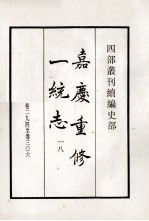 四部叢刊續編史部
嘉慶重修
一統志
一八
卷二九四至卷三〇六